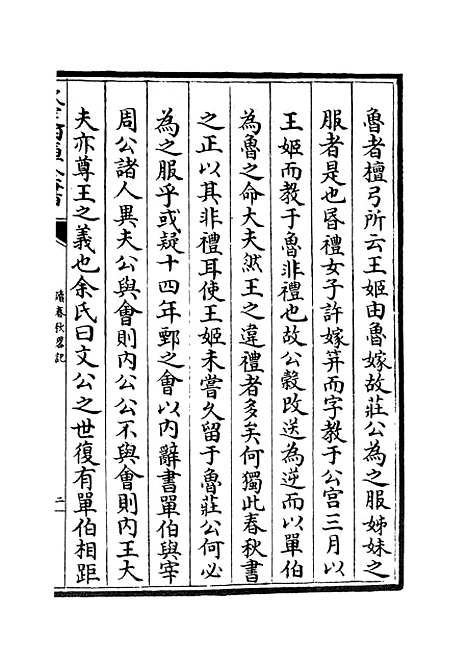 魯者檀弓所云王姬由魯嫁故莊公為之服姊妹之
服者是也昬禮女子許嫁筓而字教于公宫三月以
王姬而教于魯非禮也故公穀改送為逆而以單伯
為魯之命大夫然王之違禮者多矣何獨此春秋書
之正以其非禮耳使王姬未嘗久留于魯莊公何必
為之服乎或疑十四年鄄之會以内辭書單伯與宰
周公諸人異夫公與會則内公公不與會則内王大
夫亦尊王之義也余氏曰文公之世復有單伯相距
讀春秋畧記
二